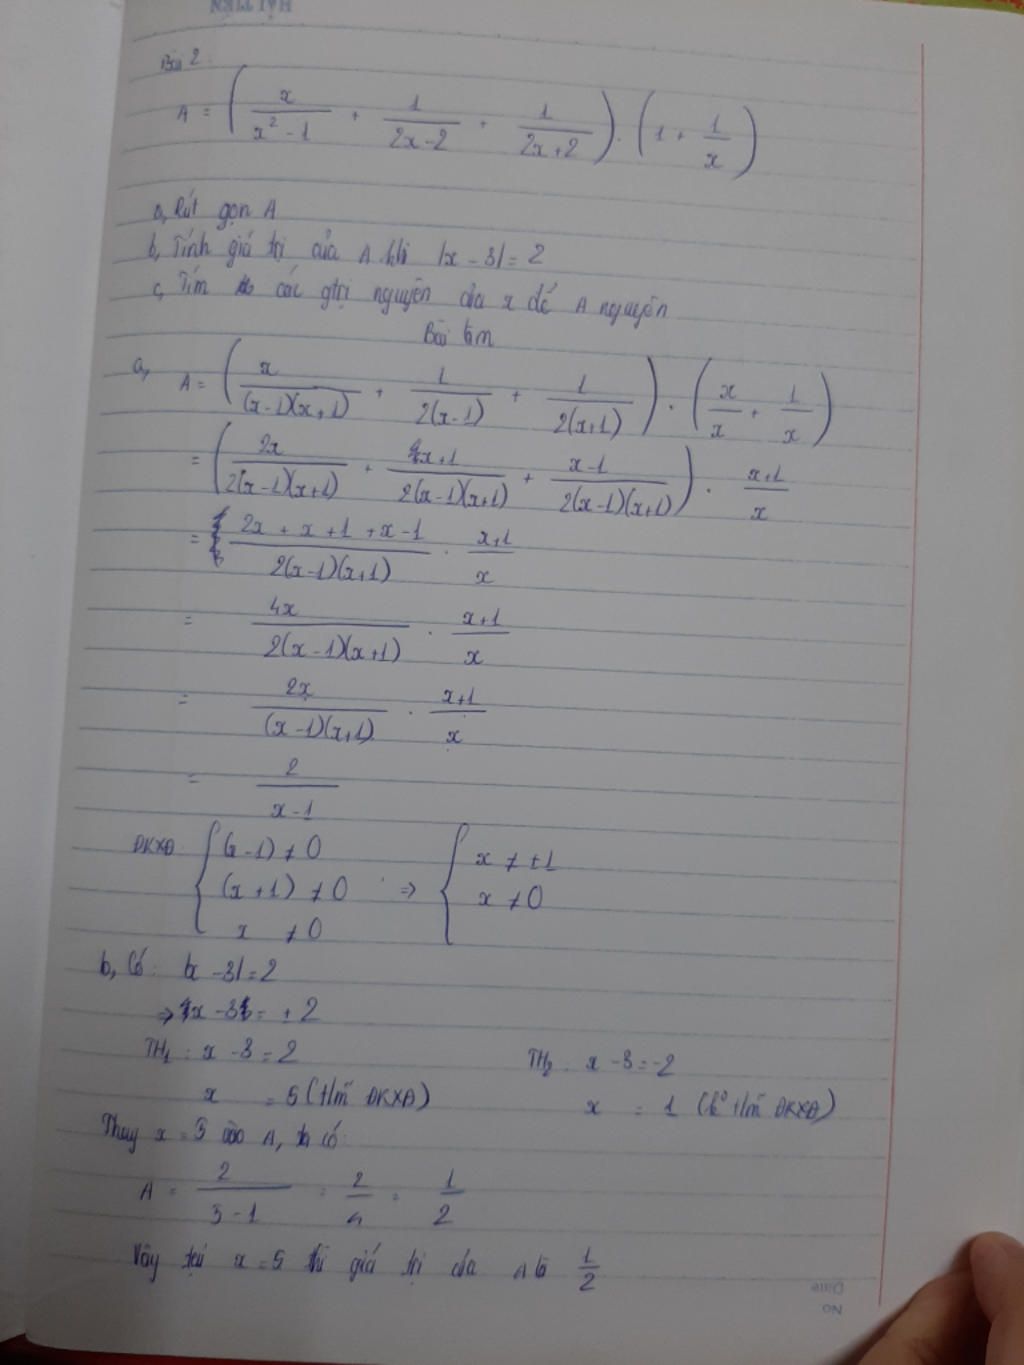 HẢI TIẾN
Bài 2:
A = ( x/(x² - 1) + 1/(2x - 2) + 1/(2x + 2) ) . ( 1 + 1/x )
a, Rút gọn A
b, Tính giá trị của A khi |x - 3| = 2
c, Tìm các gtrị nguyên của x để A nguyên
Bài làm
a, A = ( x/((x - 1)(x + 1)) + 1/(2(x - 1)) + 1/(2(x + 1)) ) . ( x/x + 1/x )
= ( 2x/(2(x - 1)(x + 1)) + (x + 1)/(2(x - 1)(x + 1)) + (x - 1)/(2(x - 1)(x + 1)) ) . (x + 1)/x
= (2x + x + 1 + x - 1)/(2(x - 1)(x + 1)) . (x + 1)/x
= 4x/(2(x - 1)(x + 1)) . (x + 1)/x
= 2x/((x - 1)(x + 1)) . (x + 1)/x
= 2/(x - 1)
ĐKXĐ: { (x - 1) ≠ 0 ; (x + 1) ≠ 0 ; x ≠ 0 ⇒ { x ≠ ±1 ; x ≠ 0
b, Có: |x - 3| = 2
⇒ x - 3 = ± 2
TH1: x - 3 = 2 TH2: x - 3 = -2
x = 5 (t/m ĐKXĐ) x = 1 (k° t/m ĐKXĐ)
Thay x = 5 vào A, ta có:
A = 2/(5 - 1) = 2/4 = 1/2
Vậy tại x = 5 thì giá trị của A là 1/2
Date
No